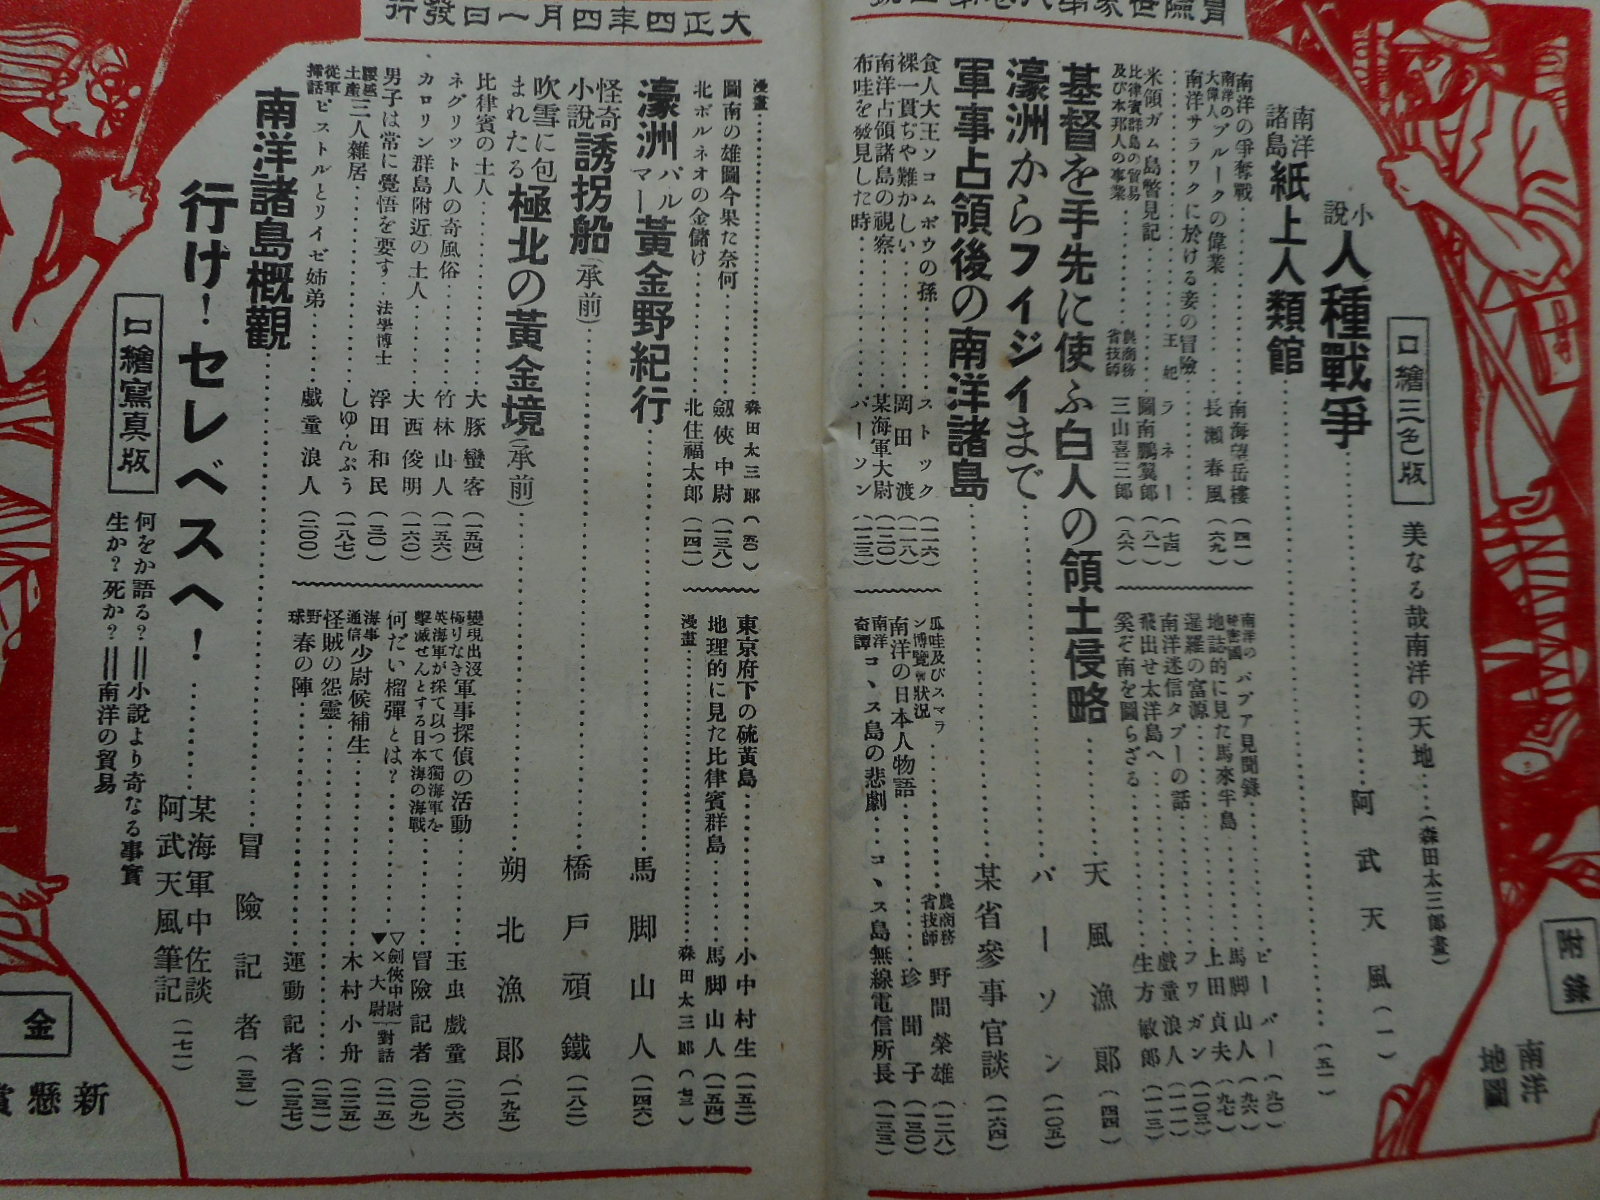 大正四年四月一日發行
口繪三色版
美なる哉南洋の天地……(森田太三郎畫)
附錄
南洋地圖
小說 人種戰爭…………阿武天風(一)
南洋諸島 紙上人類館…………(五一)
南洋の爭奪戰…………南海望岳樓(四一)
南洋の大偉人 ブルークの偉業…………長瀬春風(六九)
南洋サラワクに於ける妾の冒險……王妃ラネー(七四)
米領ガム島瞥見記…………圖南鵬翼郎(八一)
比律賓群島の貿易及び本邦人の事業…………農商務省技師 三山喜三郎(八六)
南洋のパプア見聞錄…………ビーバー(九〇)
地誌的に見た馬來半島…………馬脚山人(九六)
暹羅の富源…………上田貞夫(九七)
南洋迷信タブーの話…………フワガン(一〇三)
飛出せ太洋島へ…………戲童浪人(一一一)
奚ぞ南を圖らざる…………生方敏郎(一一三)
基督を手先に使ふ白人の領土侵略…………天風漁郎(四四)
濠洲からフイジイまで…………パーソン(一〇五)
軍事占領後の南洋諸島…………某省參事官談(一六四)
食人大王ソコムボウの孫…………ストック(一一六)
裸一貫ぢや難かしい…………岡田渡(一一八)
南洋占領諸島の視察…………某海軍大尉(一二〇)
布哇を發見した時…………パーソン(一二三)
瓜哇及びスマラン博覽會狀況…………農商務省技師 野間榮雄(一二八)
南洋の日本人物語…………珍聞子(一三〇)
南洋奇譚 コヽス島の悲劇…………コヽス島無線電信所長(一三三)
漫畫…………森田太三郎(五〇)
圖南の雄圖今果た奈何…………劔俠中尉(一三八)
北ボルネオの金儲け…………北住福太郎(一四一)
東京府下の硫黃島…………小中村生(一五二)
地理的に見た比律賓群島…………馬脚山人(一五四)
漫畫…………森田太三郎(七三)
濠洲パルマー黃金野紀行…………馬脚山人(一四六)
怪奇小說 誘拐船(承前)…………橋戶頑鐵(一八二)
吹雪に包まれたる極北の黃金境(承前)…………朔北漁郎(一九五)
比律賓の土人…………大豚蠻客(一五四)
ネグリット人の奇風俗…………竹林山人(一五六)
カロリン群島附近の土人…………大西俊明(一六〇)
男子は常に覺悟を要す…法學博士 浮田和民(三〇)
土産 三人雜居…………しゆんぷう(一八七)
從軍插話 ピストルとリイゼ姉弟…………戲童浪人(二〇〇)
變現出沒極りなき軍事探偵の活動…………玉虫戲童(二〇六)
英海軍が採て以つて獨海軍を擊滅せんとする日本海の海戰…………冒險記者(二〇九)
何だい榴彈とは?…………▽劍俠中尉 ▼×大尉(對話)(二一五)
海事通信 少尉候補生…………木村小舟(二二五)
怪賊の怨靈…………(二三一)
野球 春の陣…………運動記者(二三七)
南洋諸島概觀…………冒險記者(三三)
行け!セレベスへ!…………某海軍中佐談 阿武天風筆記(一七一)
口繪寫真版
何をか語る?‖小說より奇なる事實
生か?死か?‖南洋の貿易
金
新懸賞